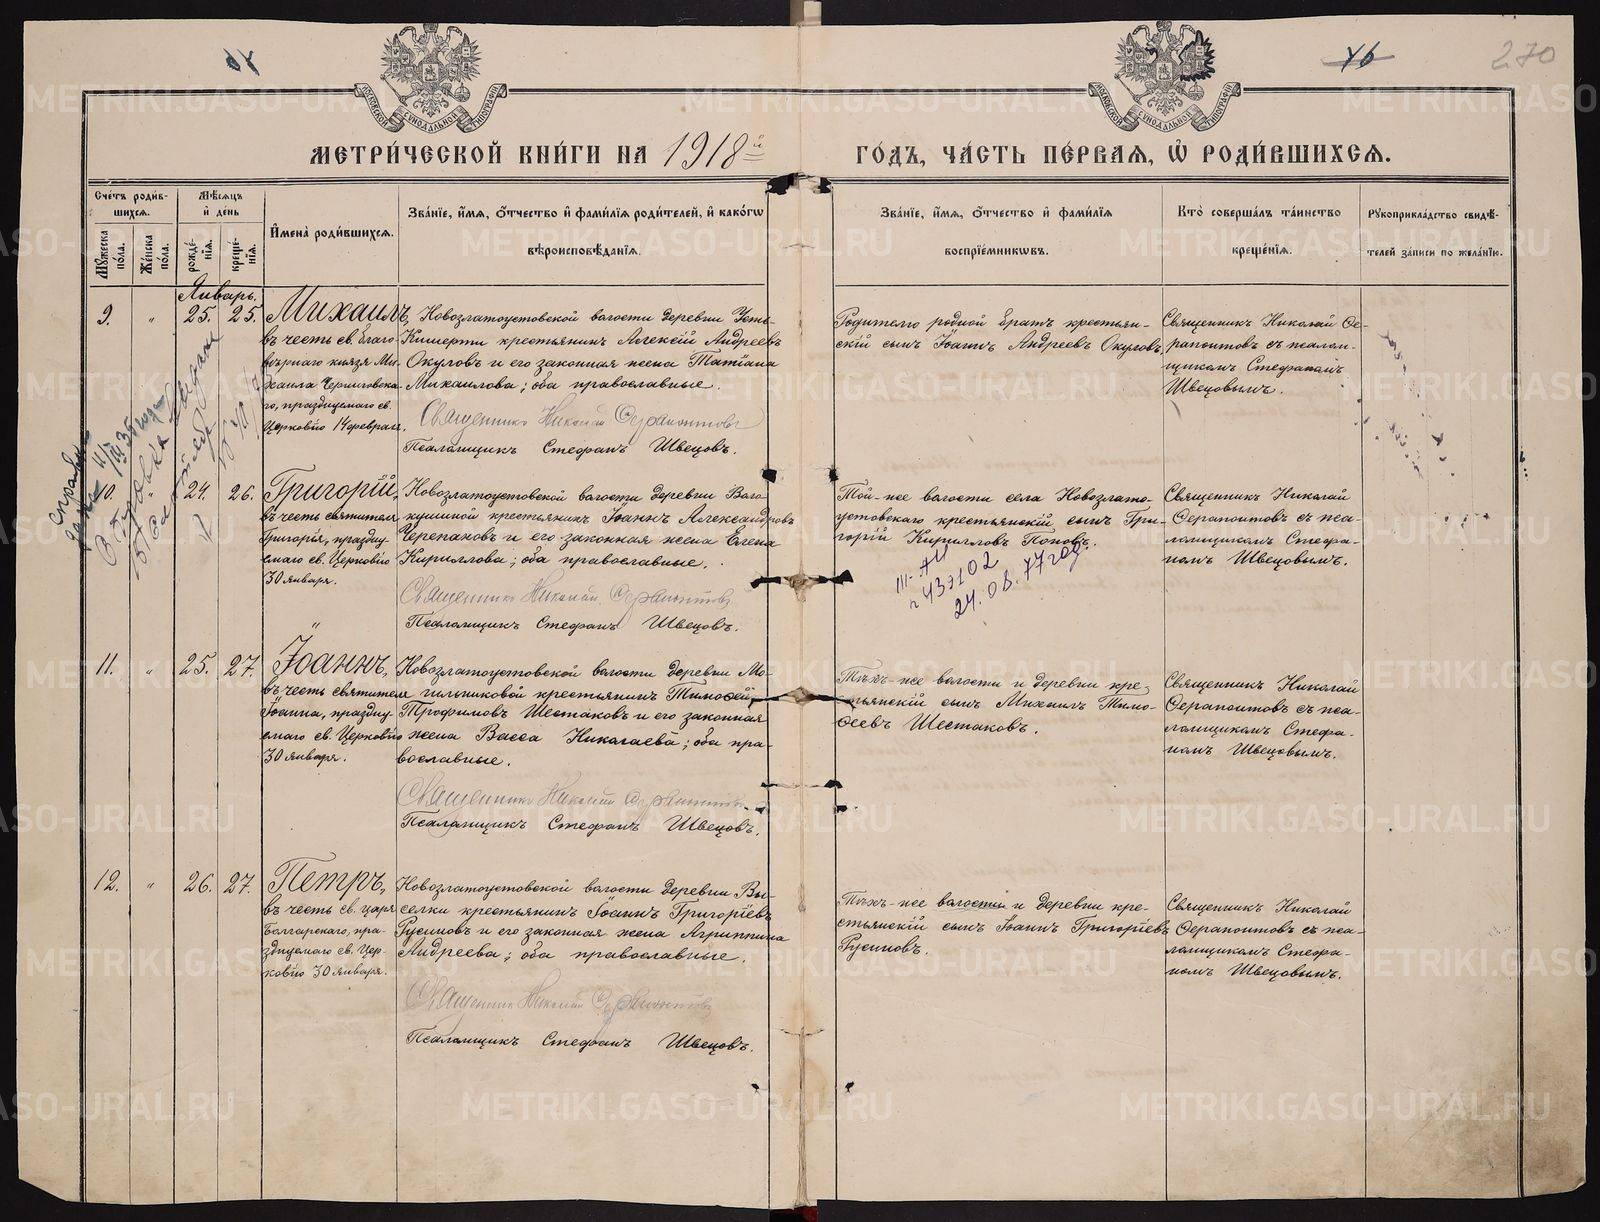 270
МЕТРИ́ЧЕСКОЙ КНИ́ГИ НА 1918й ГО́ДЪ, ЧА́СТЬ ПЕ́РВАЯ, Ѡ РОДИ́ВШИХСЯ.
МОСКОВСКОЙ СѴНОДАЛЬНОЙ ТИПОГРАФІИ
МОСКОВСКОЙ СѴНОДАЛЬНОЙ ТИПОГРАФІИ
Сче́тъ роди́вшихся.
Му́жеска по́ла.
Же́нска по́ла.
Мѣ́сяцъ и де́нь
рожде́нія.
креще́нія.
Имена̀ роди́вшихся.
Зва́ніе, и́мя, о́тчество и фами́лія роди́телей, и како́гѡ
вѣроисповѣ́данія.
Зва́ніе, и́мя, о́тчество и фами́лія
воспріе́мникѡвъ.
Кто̀ соверша́лъ та́инство
креще́нія.
Рукоприкла́дство свидѣ́-
телей за́писи по жела́нію.
Январь.
9. „ 25. 25.
Михаилъ,
въ честь св. благо-
вѣрнаго князя Ми-
хаила Черниговска-
го, празднуемаго св.
Церковію 14 февраля.
Новозлатоустовской волости деревни Усть-
Кишерти крестьянинъ Алексій Андреевъ
Окуловъ и его законная жена Татіана
Михаилова; оба православные.
Священникъ Николай Ѳерапонтовъ
Псаломщикъ Стефанъ Швецовъ.
Родителю родной братъ крестьян-
скій сынъ Іоаннъ Андреевъ Окуловъ
Священникъ Николай Ѳе-
рапонтовъ съ псалом-
щикомъ Стефаномъ
Швецовымъ.
10. „ 24. 26.
Григорій,
въ честь святителя
Григорія, праздну-
емаго св. Церковію
30 января.
Новозлатоустовской волости деревни
крестьянинъ Іоаннъ Александровъ
Черепановъ и его законная жена Елена
Кириллова; оба православные.
Священникъ Николай Ѳерапонтовъ
Псаломщикъ Стефанъ Швецовъ.
Той-же волости села Новозлато-
устовскаго крестьянскій сынъ Гри-
горій Кирилловъ Поповъ.
24.08.77 год
Священникъ Николай
Ѳерапонтовъ съ пса-
ломщикомъ Стефа-
номъ Швецовымъ.
11. „ 25. 27.
Іоаннъ,
въ честь святителя
Іоанна, праздну-
емаго св. Церковію
30 января.
Новозлатоустовской волости деревни Мо-
гильниковой крестьянинъ Тимоѳей
Трофимовъ Шестаковъ и его законная
жена Васса Николаева; оба пра-
вославные.
Священникъ Николай Ѳерапонтовъ
Псаломщикъ Стефанъ Швецовъ.
Тѣхъ-же волости и деревни кре-
стьянскій сынъ Михаилъ Тимо-
ѳеевъ Шестаковъ.
Священникъ Николай
Ѳерапонтовъ съ пса-
ломщикомъ Стефа-
номъ Швецовымъ.
12. „ 26. 27.
Петръ,
въ честь св. царя
Болгарскаго, пра-
зднуемаго св. Цер-
ковію 30 января.
Новозлатоустовской волости деревни Вы-
селки крестьянинъ Іоаннъ Григоріевъ
Русиновъ и его законная жена Агриппина
Андреева; оба православные.
Священникъ Николай Ѳерапонтовъ
Псаломщикъ Стефанъ Швецовъ.
Тѣхъ-же волости и деревни кре-
стьянскій сынъ Іоаннъ Григоріевъ
Русиновъ.
Священникъ Николай
Ѳерапонтовъ съ пса-
ломщикомъ Стефа-
номъ Швецовымъ.
METRIKI.GASO-URAL.RU